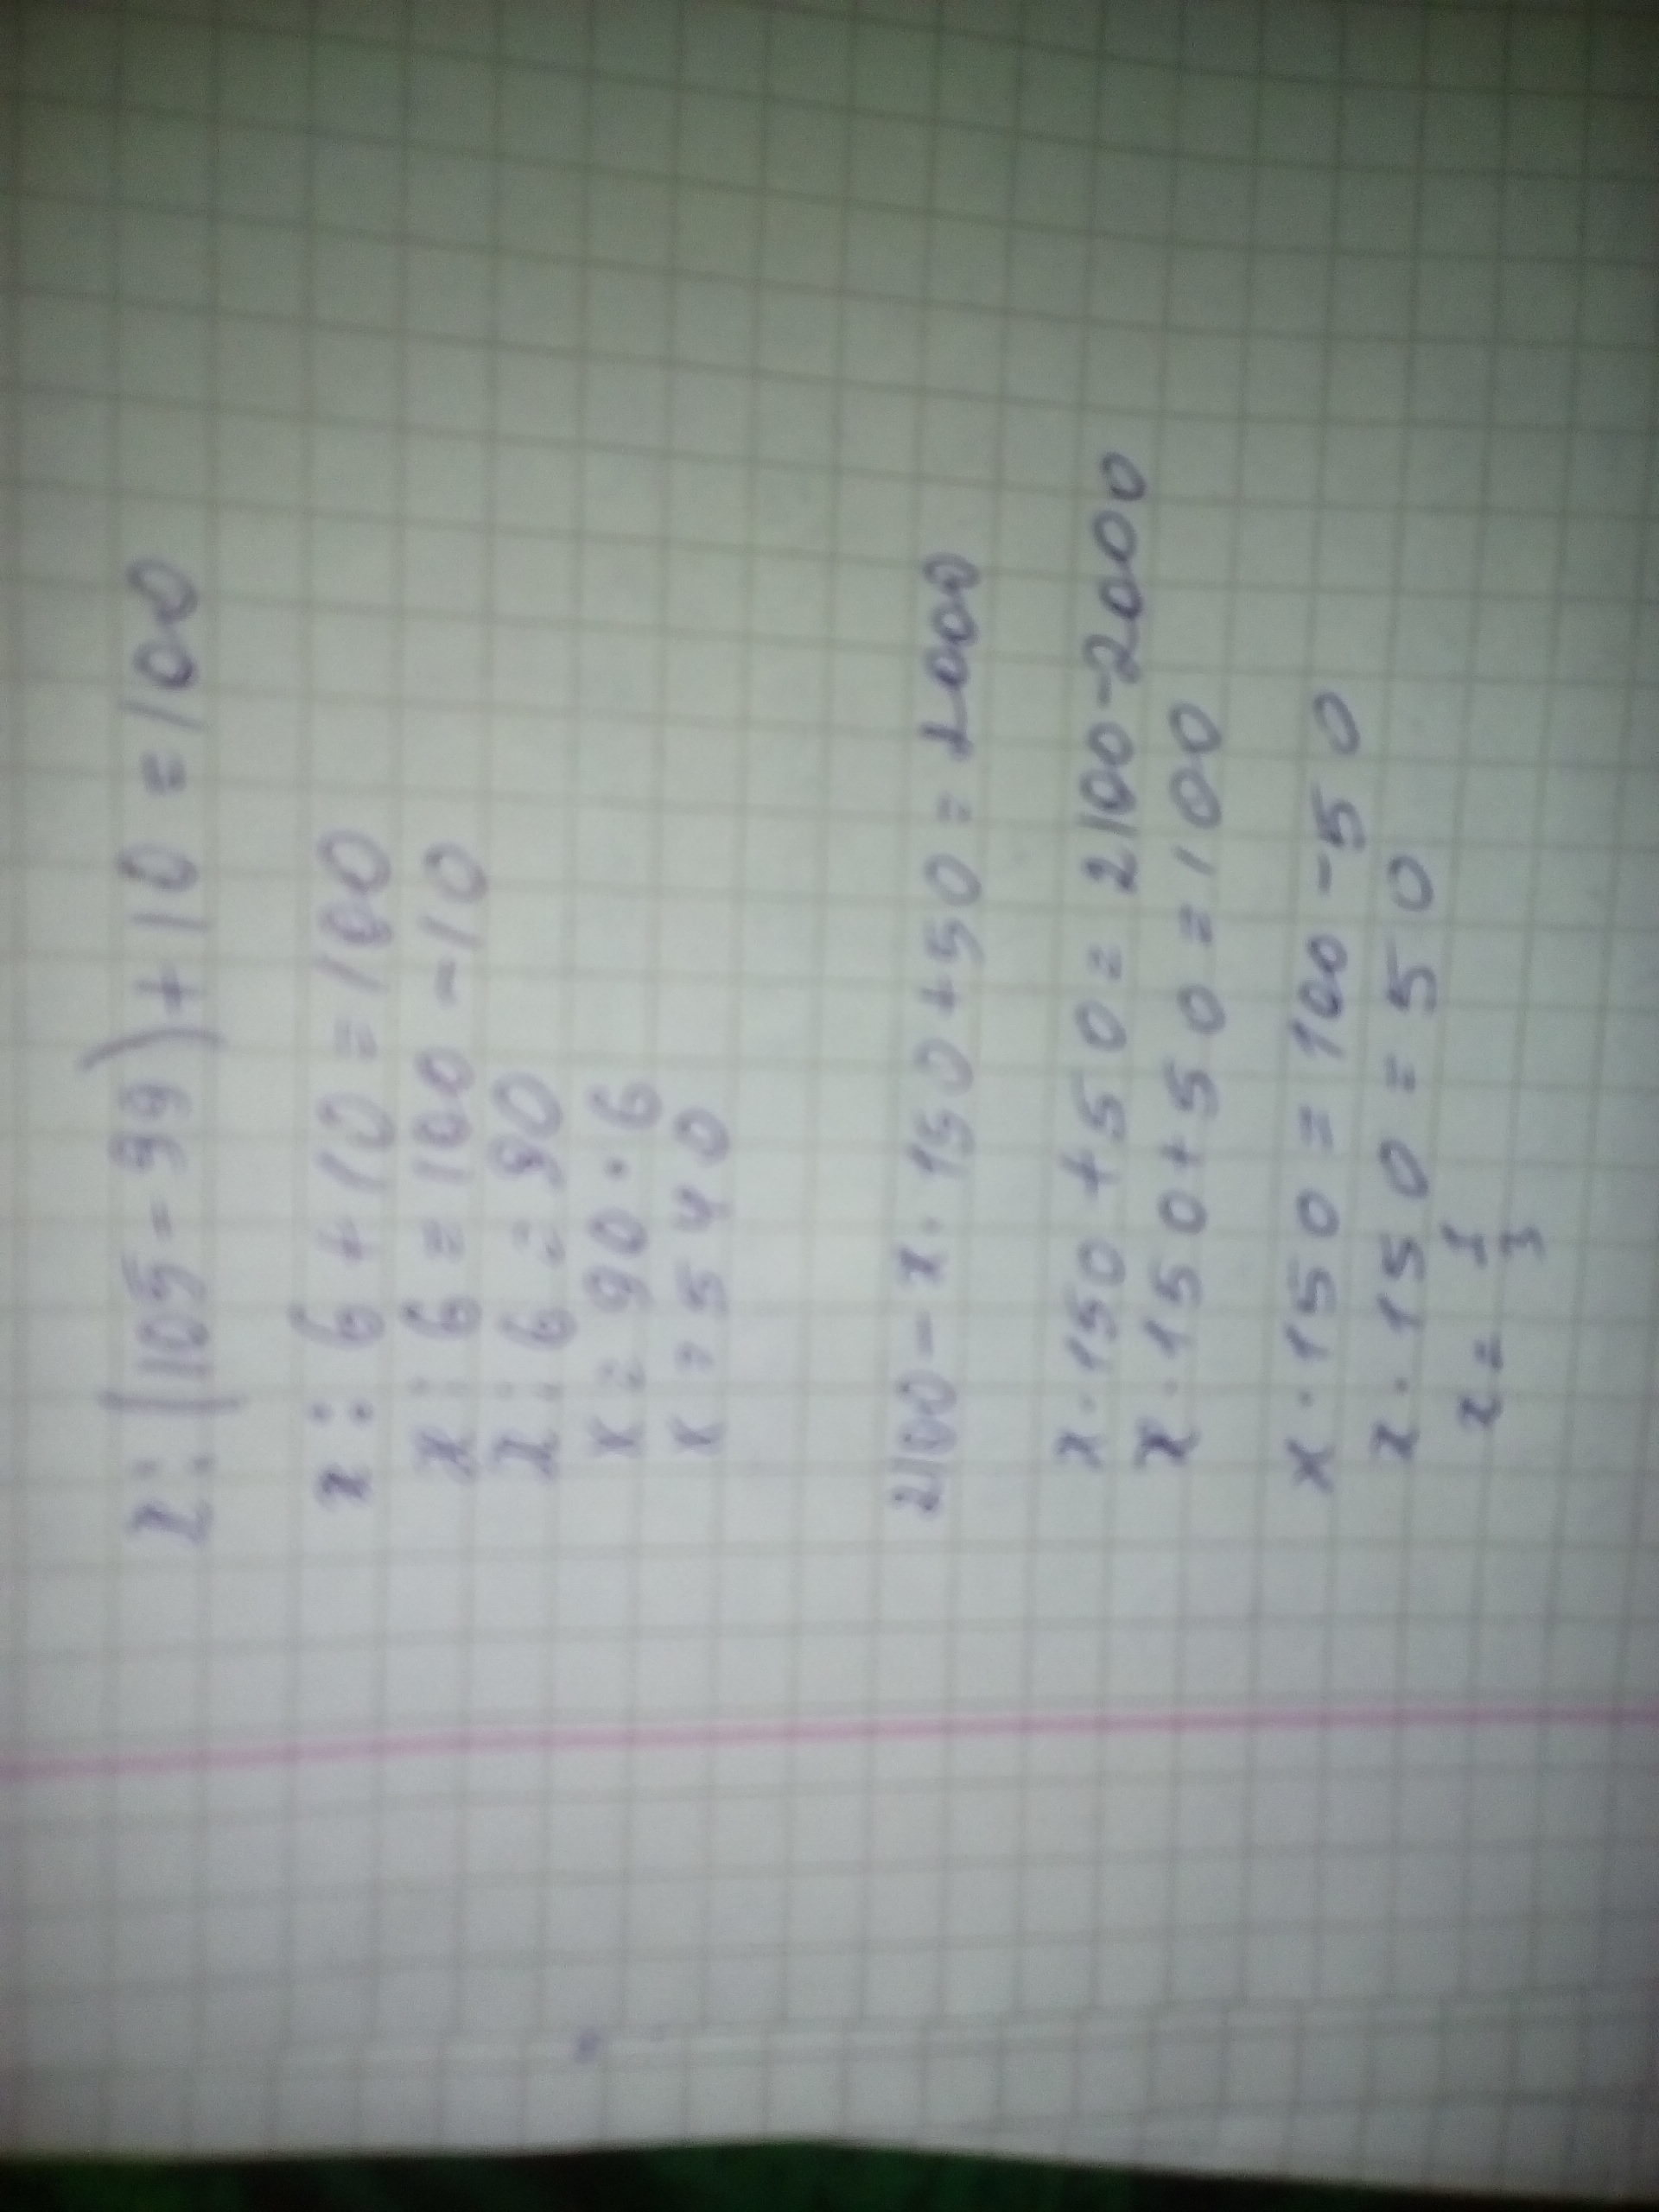 x : (105 - 99) + 10 = 100
x : 6 + 10 = 100
x : 6 = 100 - 10
x : 6 = 90
x = 90 · 6
x = 540
2100 - x · 150 + 50 = 2000
x · 150 + 50 = 2100 - 2000
x · 150 + 50 = 100
x · 150 = 100 - 50
x · 150 = 50
x = 1/3